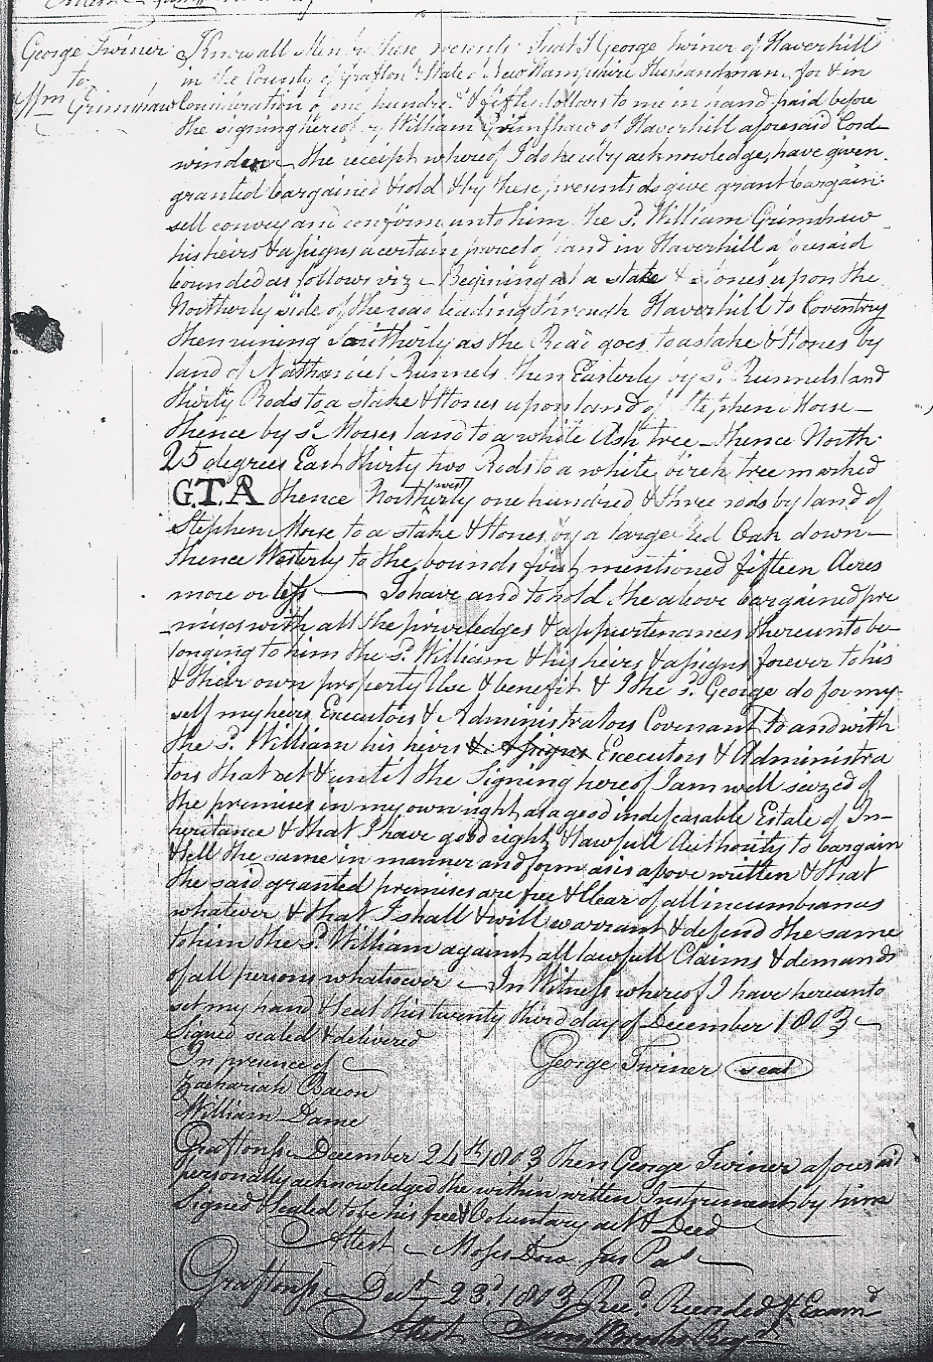 George Twiner
to
Wm Grimshaw
Know all Men by these presents that I George Twiner of Haverhill
in the County of Grafton & State of New Hampshire Husbandman, for & in
Consideration of one hundred & fifty dollars to me in hand paid before
the signing hereof by William Grimshaw of Haverhill aforesaid Cord-
winder the receipt whereof I do hereby acknowledge, have given
granted bargained & sold & by these presents do give grant bargain
sell convey and confirm unto him the sd. William Grimshaw
his heirs & assigns a certain parcel of land in Haverhill aforesaid
bounded as follows viz - Begining at a stake & stones upon the
Northerly side of the road leading through Haverhill to Coventry
then runing Southerly as the Road goes to a stake & Stones by
land of Nathaniel Runnels then Easterly by sd. Runnels land
thirty Rods to a stake & stones upon land of Stephen Morse -
thence by sd. Morses land to a white Ash tree - thence North
25 degrees East thirty two Rods to a white birch tree marked
G.T.A thence Northwesterly one hundred & three rods by land of
Stephen Morse to a stake & stones by a large Red Oak down -
thence Westerly to the bounds first mentioned fifteen Acres
more or less — To have and to hold the above bargained pre
mises with all the priviledges & appurtenances thereunto be-
longing to him the sd. William & his heirs & assigns forever to his
& their own property Use & benefit & I the sd. George do for my-
self my heirs Executors & Administrators Covenant to and with
the sd. William his heirs & Assigns Executors & Administra
tors that at & until the Signing hereof I am well seized of
the premises in my own right as a good indefeasable Estate of In-
heritance & that I have good right & lawfull Authority to bargain
& sell the same in manner and form as is above written & that
the said granted premises are free & Clear of all incumbrances
whatever & that I shall & will warrant & defend the same
to him the sd. William against all lawfull Claims & demands
of all persons whatsoever - In Witness whereof I have hereunto
set my hand & seal this twenty third day of December 1803
Signed sealed & delivered
In presence of
George Twiner seal
Zachariah Bacon
William Dame
Grafton ss December 24th 1803 then George Twiner aforesaid
personally acknowledged the within written Instrument by him
Signed & sealed to be his free & Voluntary act & Deed
Attest - Moses Dow Jus Pas
Grafton ss - Decr. 23d. 1803 Recd. Recorded & Examd
Attest